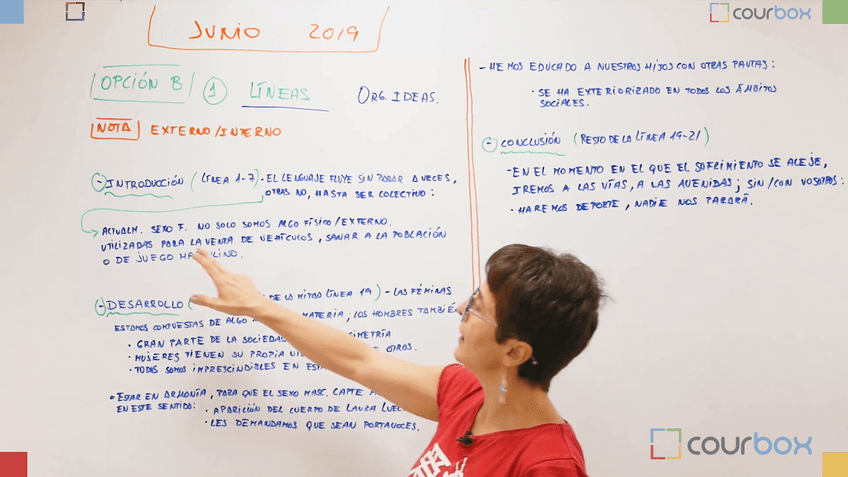 courbox
JUNIO 2019
OPCIÓN B 1 LÍNEAS ORG. IDEAS.
NOTA EXTERNO/INTERNO
- INTRODUCCIÓN (LÍNEA 1-7). EL LENGUAJE FLUYE SIN PARAR A VECES,
OTRAS NO, HASTA SER COLECTIVO:
ACTUALM. SEXO F. NO SOLO SOMOS ALGO FÍSICO/EXTERNO.
UTILIZADAS PARA LA VENTA DE VEHÍCULOS, SANAR A LA POBLACIÓN
O DE JUEGO
- DESARROLLO ( DE LA MITAD LÍNEA 19) - LAS FÉMINAS
ESTAMOS COMPUESTAS DE ALGO MATERIA, LOS HOMBRES TAMBIÉ
• GRAN PARTE DE LA SOCIEDAD IMETRÍA
• MUJERES TIENEN SU PROPIA OTROS.
• TODOS SOMOS IMPRESCINDIBLES EN
• ESTAR EN ARMONÍA, PARA QUE EL SEXO MASC. CAPTE
EN ESTE SENTIDO: • APARICIÓN DEL CUERPO DE LAURA LUEL
• LES DEMANDAMOS QUE SEAN PORTAVOCES.
- HEMOS EDUCADO A NUESTROS HIJOS CON OTRAS PAUTAS:
• SE HA EXTERIORIZADO EN TODOS LOS ÁMBITOS
SOCIALES.
- CONCLUSIÓN (RESTO DE LA LÍNEA 19-21)
- EN EL MOMENTO EN EL QUE EL SUFRIMIENTO SE ALEJE,
IREMOS A LAS VÍAS, A LAS AVENIDAS; SIN/CON VOSOTROS:
• HAREMOS DEPORTE, NADIE NOS PARARÁ.
courbox